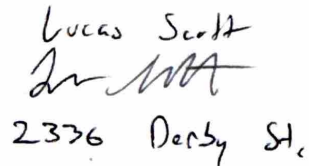 Lucas Scott
2336 Derby St.